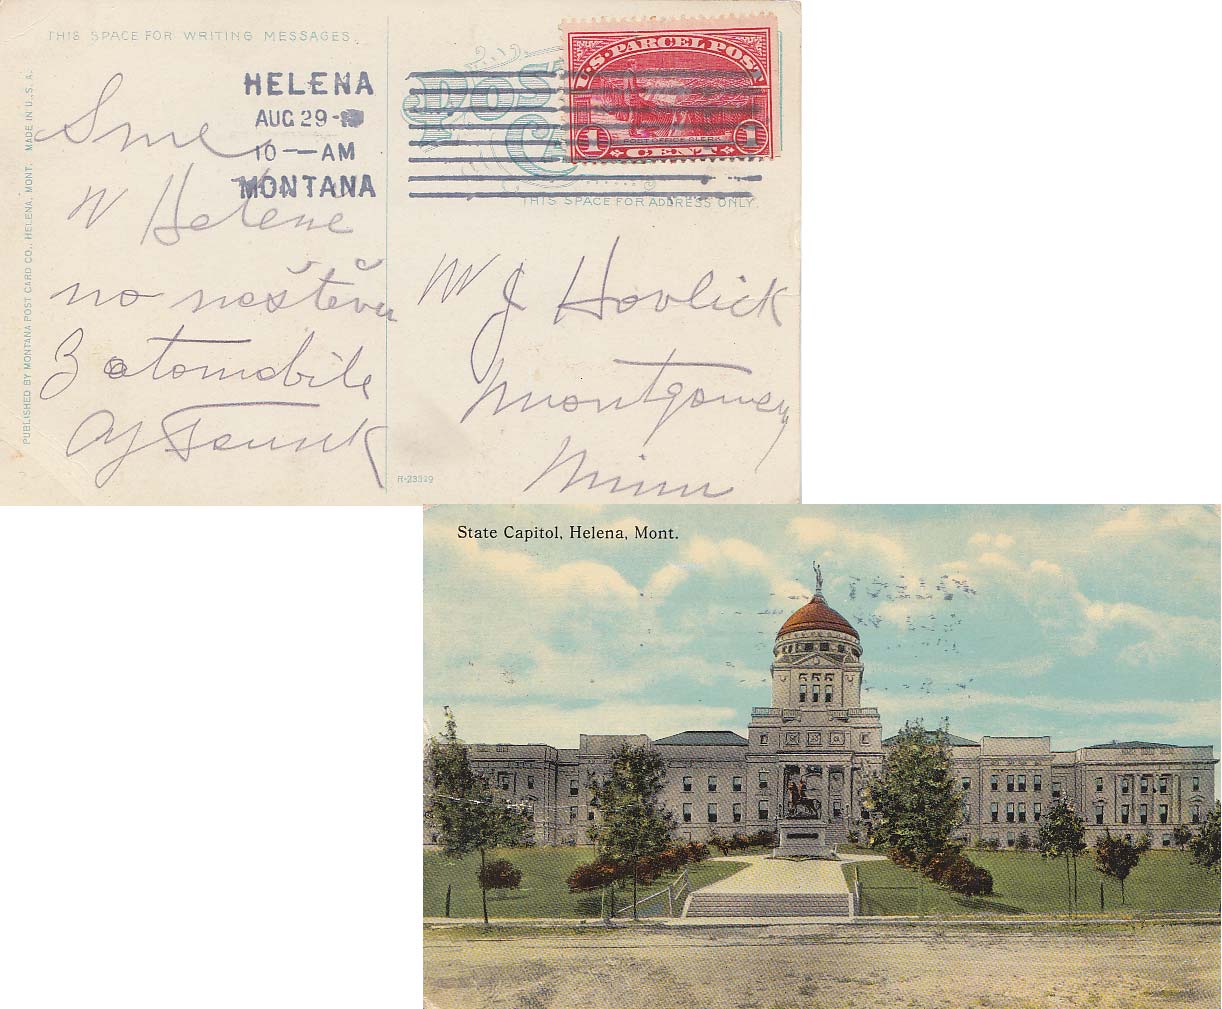 THIS SPACE FOR WRITING MESSAGES.
PUBLISHED BY MONTANA POST CARD CO., HELENA, MONT. MADE IN U.S.A.
HELENA
AUG 29
10—AM
MONTANA
U.S. PARCEL POST
POST OFFICE CLERK
1 CENT 1
POST
THIS SPACE FOR ADDRESS ONLY.
Sme
W Helene
no neštěveu
3 atomobile
W J Hovlick
Montgomery
Minn
R-23329
State Capitol, Helena, Mont.